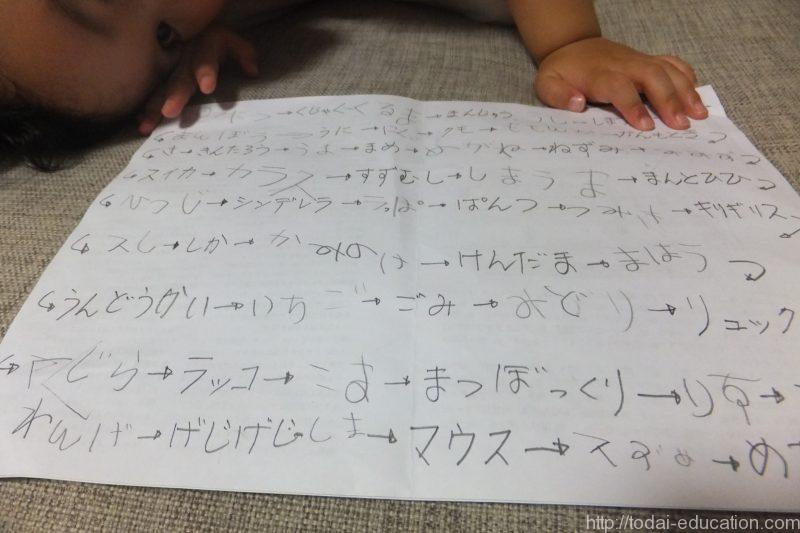 →くじゃく→くるま→まんじゅう
うに→にく→クモ→
さ→きんたろう→うま→まめ→めがね→ねずみ→
スイカ→カラス→すずむし→しまうま→まんとひひ
ひつじ→シンデレラ→らっぱ→ぱんつ→つみき→キリギリス
スし→しか→かみのけ→けんだま→まほう
うんどうかい→いちご→ごみ→みどり→リュック
くじら→ラッコ→こま→まつぼっくり→りす→
わんげ→げじげじ→しま→マウス→すずめ→め
http://todai-education.com